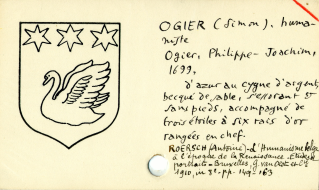 OGIER (Simon), huma-
niste
Ogier, Philippe-Joachim,
1699,
d'azur au cygne d'argent,
becqué de sable, s'essorant et
sans pieds, accompagné de
trois étoiles à six rais d'or
rangées en chef.
ROERSCH (Antoine) - L'Humanisme belge
à l'époque de la Renaissance.
portraits - Bruxelles, G. van
1910, in 8°. pp.